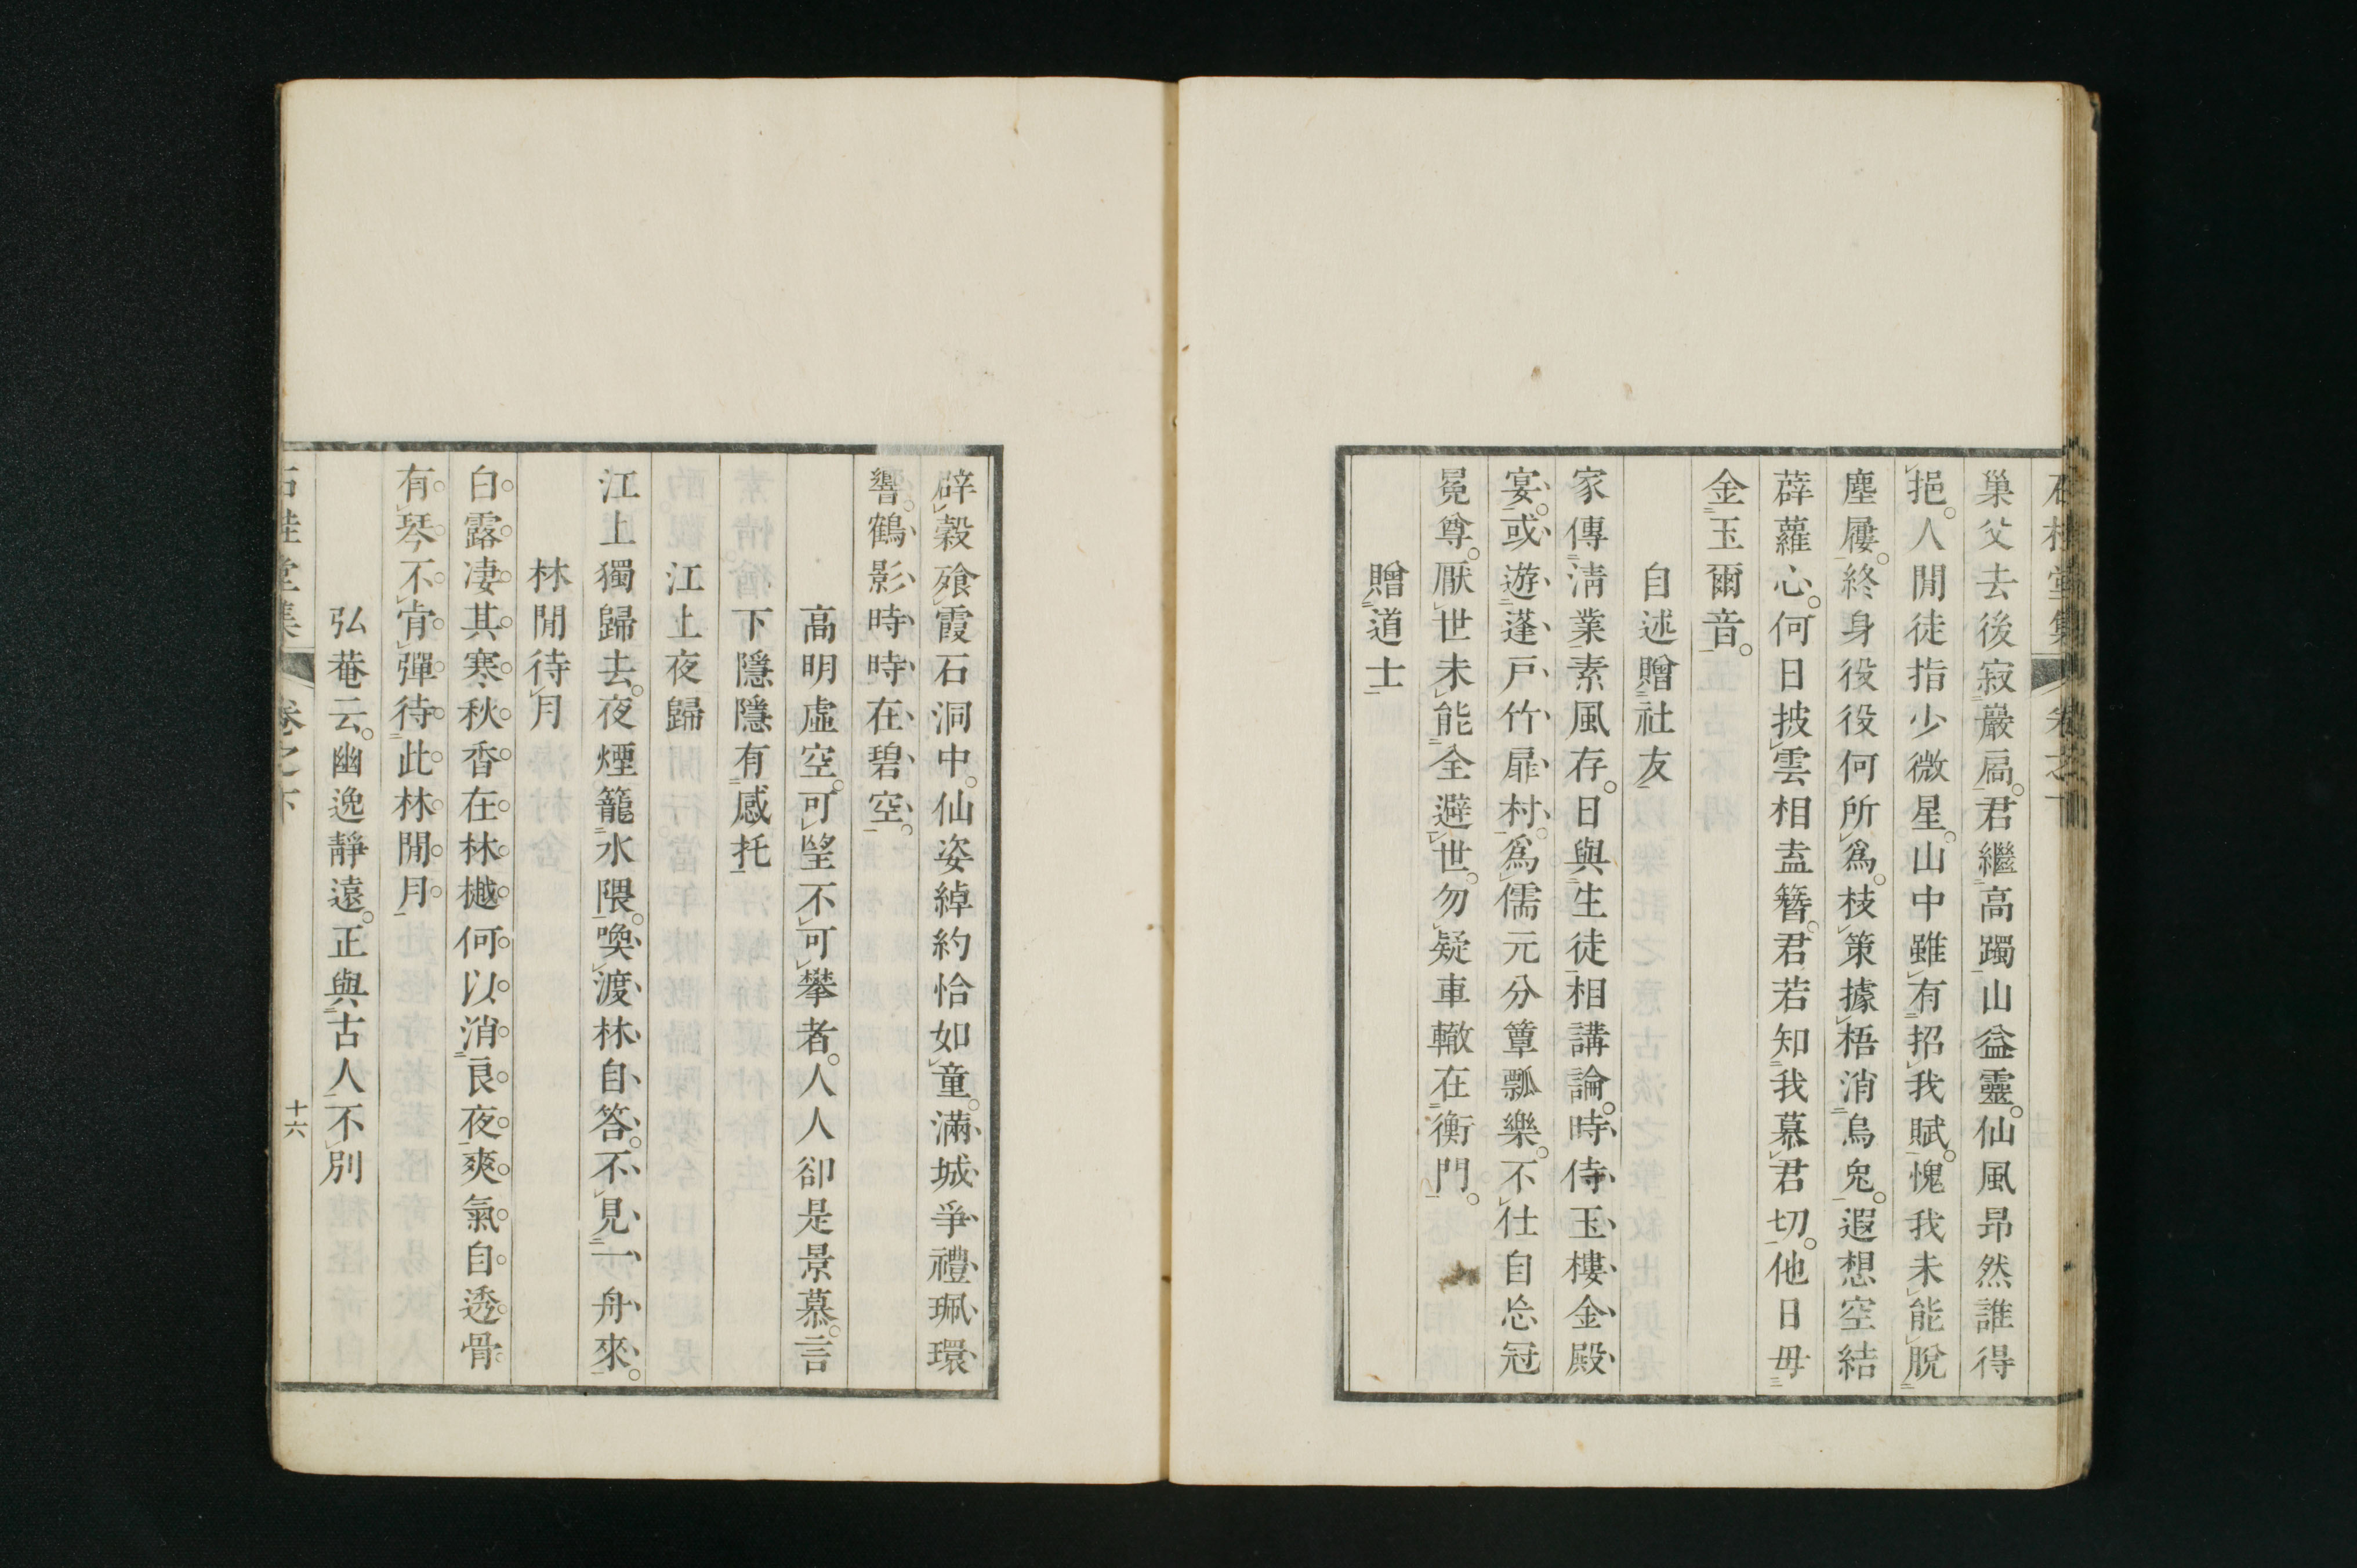 巢父去後寂巖扃。君繼高躅山益靈。仙風昂然誰得
挹。人閒徒指少微星。山中雖有招我賦。愧我未能脫
塵屨。終身役役何所爲。枝策據梧消烏兔。遐想空結
薜蘿心。何日披雲相盍簪。君若知我慕君切。他日毋
金玉爾音。
自述贈社友
家傳淸業素風存。日與生徒相講論。時侍玉樓金殿
宴。或遊蓬戶竹扉村。爲儒元分簞瓢樂。不仕自忩冠
冕尊。厭世未能全避世。勿疑車轍在衡門。
贈道士
辟穀飱霞石洞中。仙姿綽約恰如童。滿城爭禮珮環
響。鶴影時時在碧空。
高明虛空。可望不可攀者。人人卻是景慕。言
下隱隱有感托
江上夜歸
江上獨歸去。夜煙籠水隈。喚渡林自答。不見一舟來。
林閒待月
白露凄其寒。秋香在林樾。何以消良夜。爽氣自透骨。
有琴不肯彈。待此林閒月
弘菴云。幽逸靜遠。正與古人不別
卷之下
十六